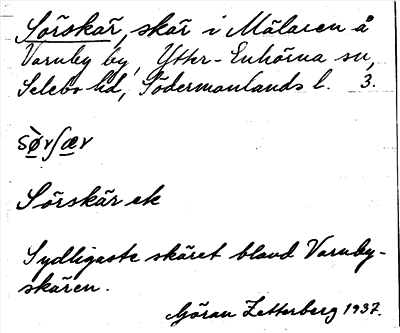 Sörskär, skär i Mälaren å
Varnby by, Ytter-Enhörna sn,
Selebo hd, Södermanlands l. 3.
sø̀rʃær
Sörskär ek
Sydligaste skäret bland Varnby-
skären.
Göran Zetterberg 1937.